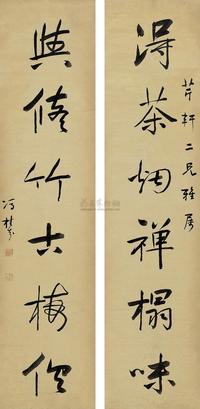 芹軒二兄雅屬
得茶烟禪榻味
與脩竹古梅
馮桂芬